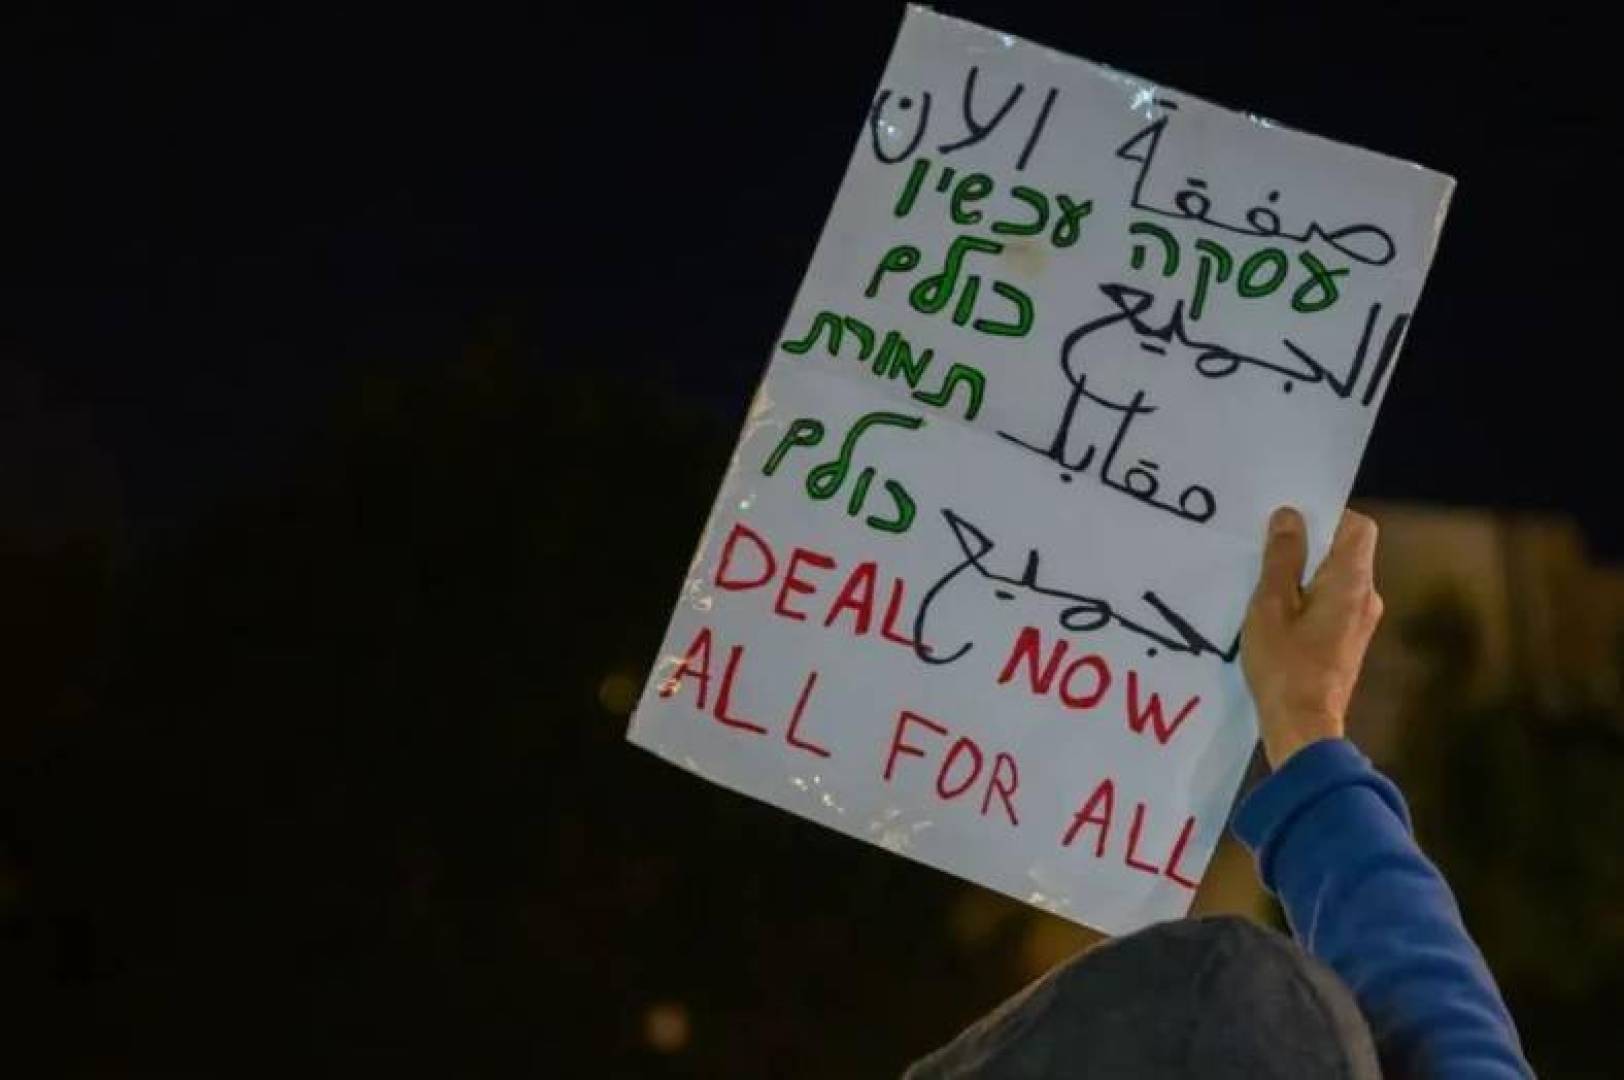 صفقة الان
עסקה עכשיו
الجميع כולם
مقابل תמורת
الجميع כולם
DEAL NOW
ALL FOR ALL